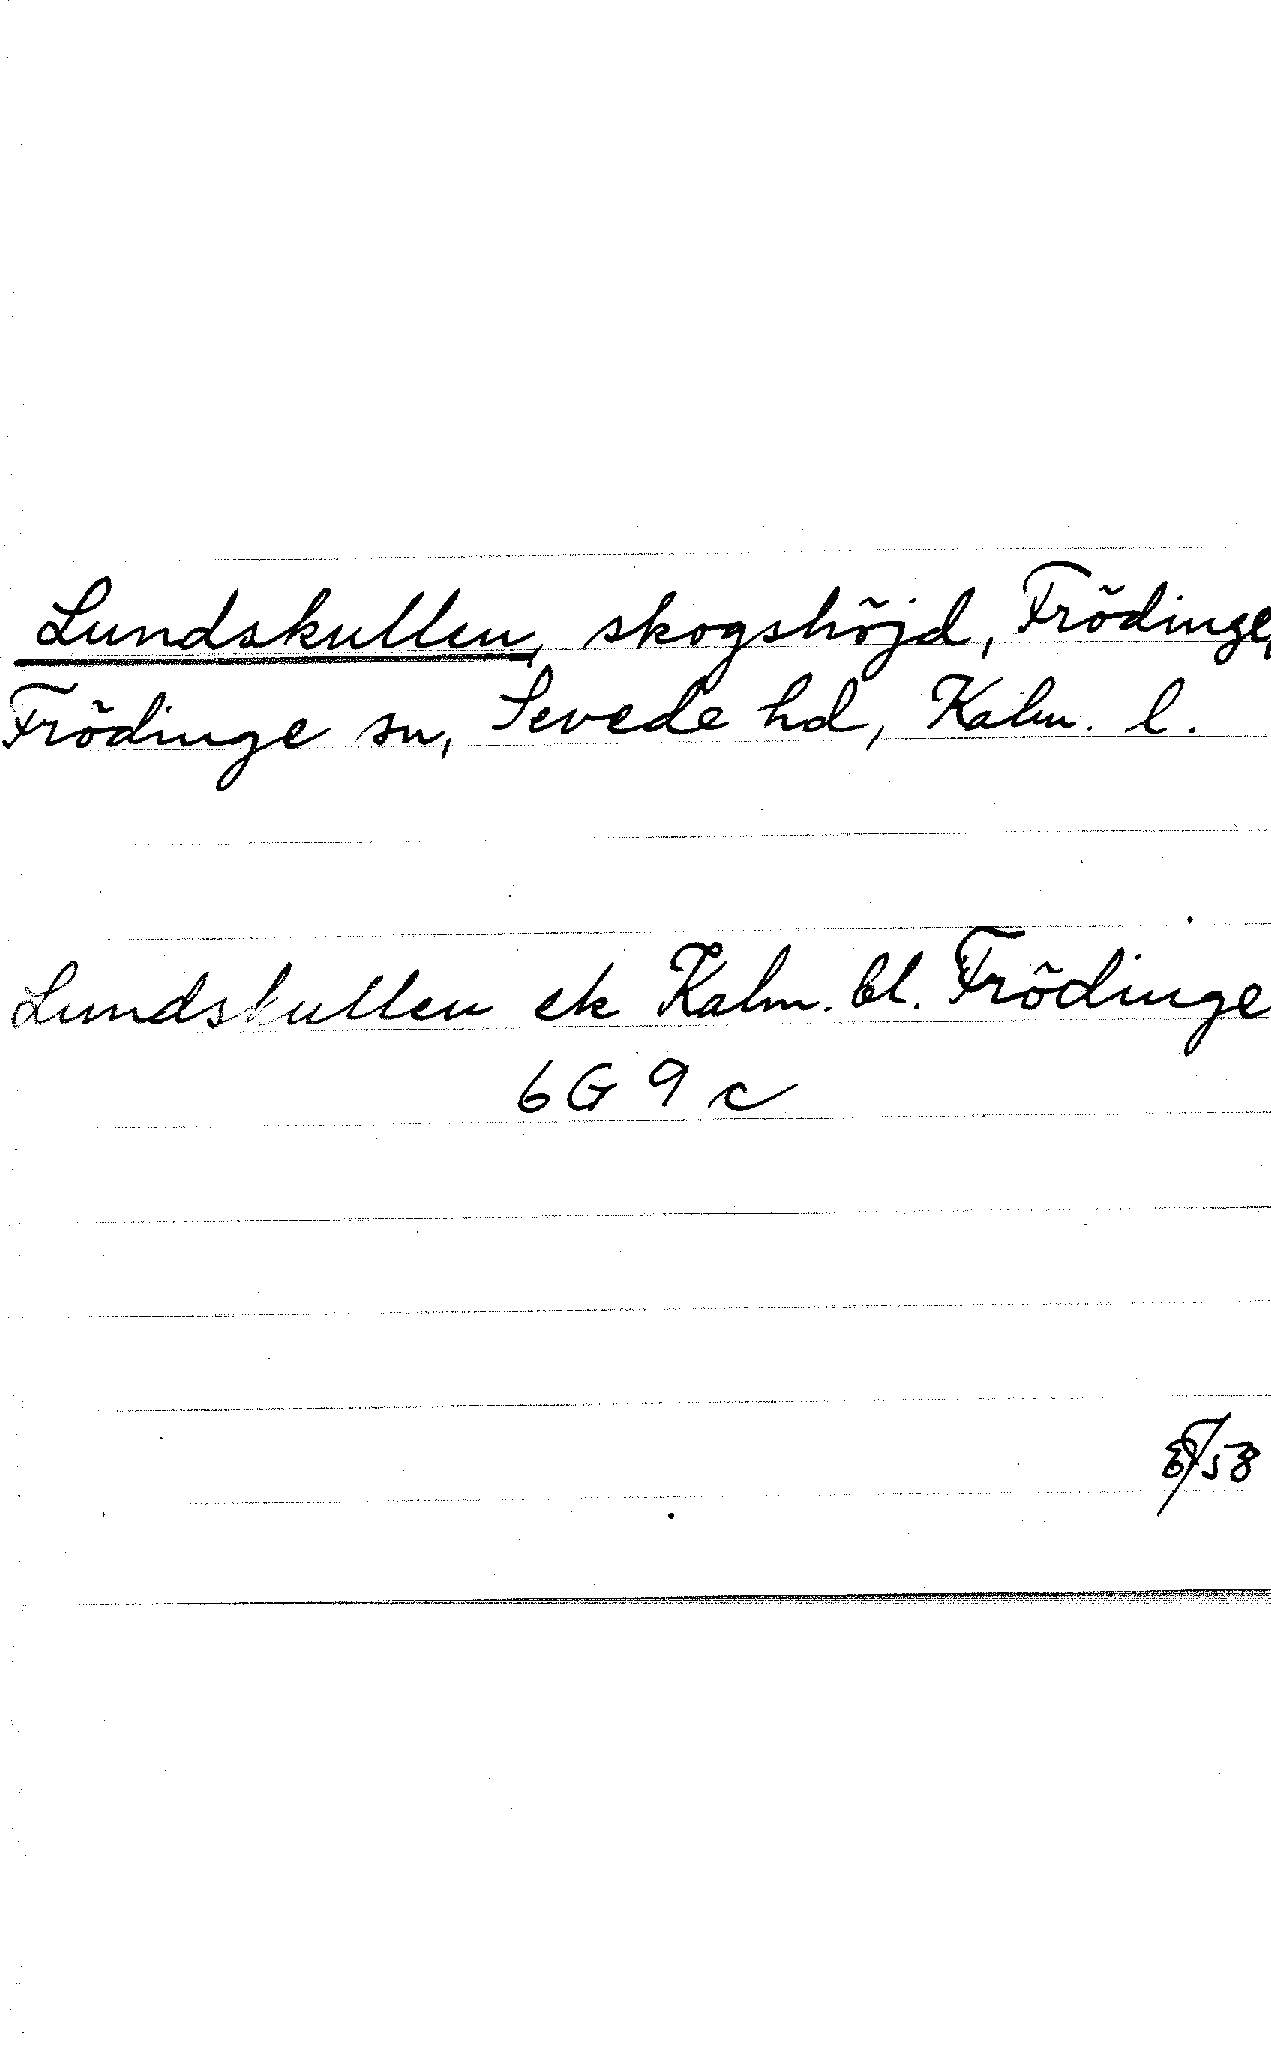 Lundskullen, skogshöjd, Frödinge,
Frödinge sn, Sevede hd, Kalm. l.
Lundskullen ek Kalm. bl. Frödinge
6G 9 c